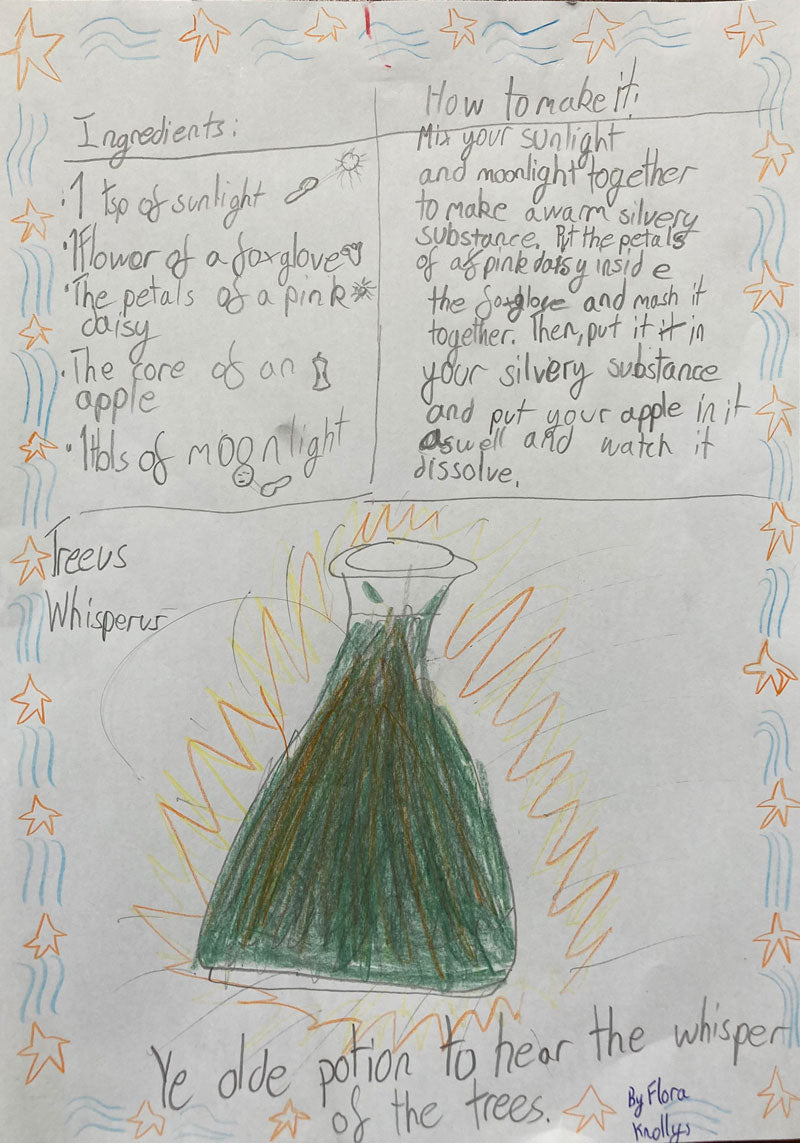 Ingredients:
· 1 tsp of sunlight
· 1 flower of a foxglove
· The petals of a pink
daisy
· The core of an
apple
· 1 tbls of moonlight
How to make it:
Mix your sunlight
and moonlight together
to make a warm silvery
substance. Put the petals
of a pink daisy inside
the foxglove and mash it
together. Then, put it it in
your silvery substance
and put your apple in it
aswell and watch it
dissolve.
Treeus
Whisperus
Ye olde potion to hear the whisper
of the trees.
By Flora
Knollys